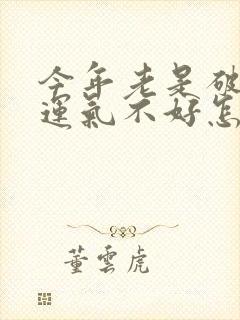 今年老是破
運氣不好怎
董雲虎